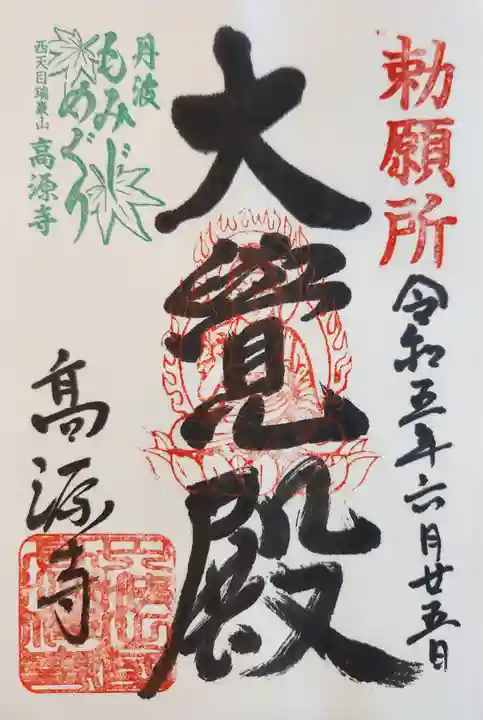 勅願所
令和五年六月廿五日
大覺殿
丹波
もみじ
めぐり
西天目瑞巌山
高源寺
髙源寺